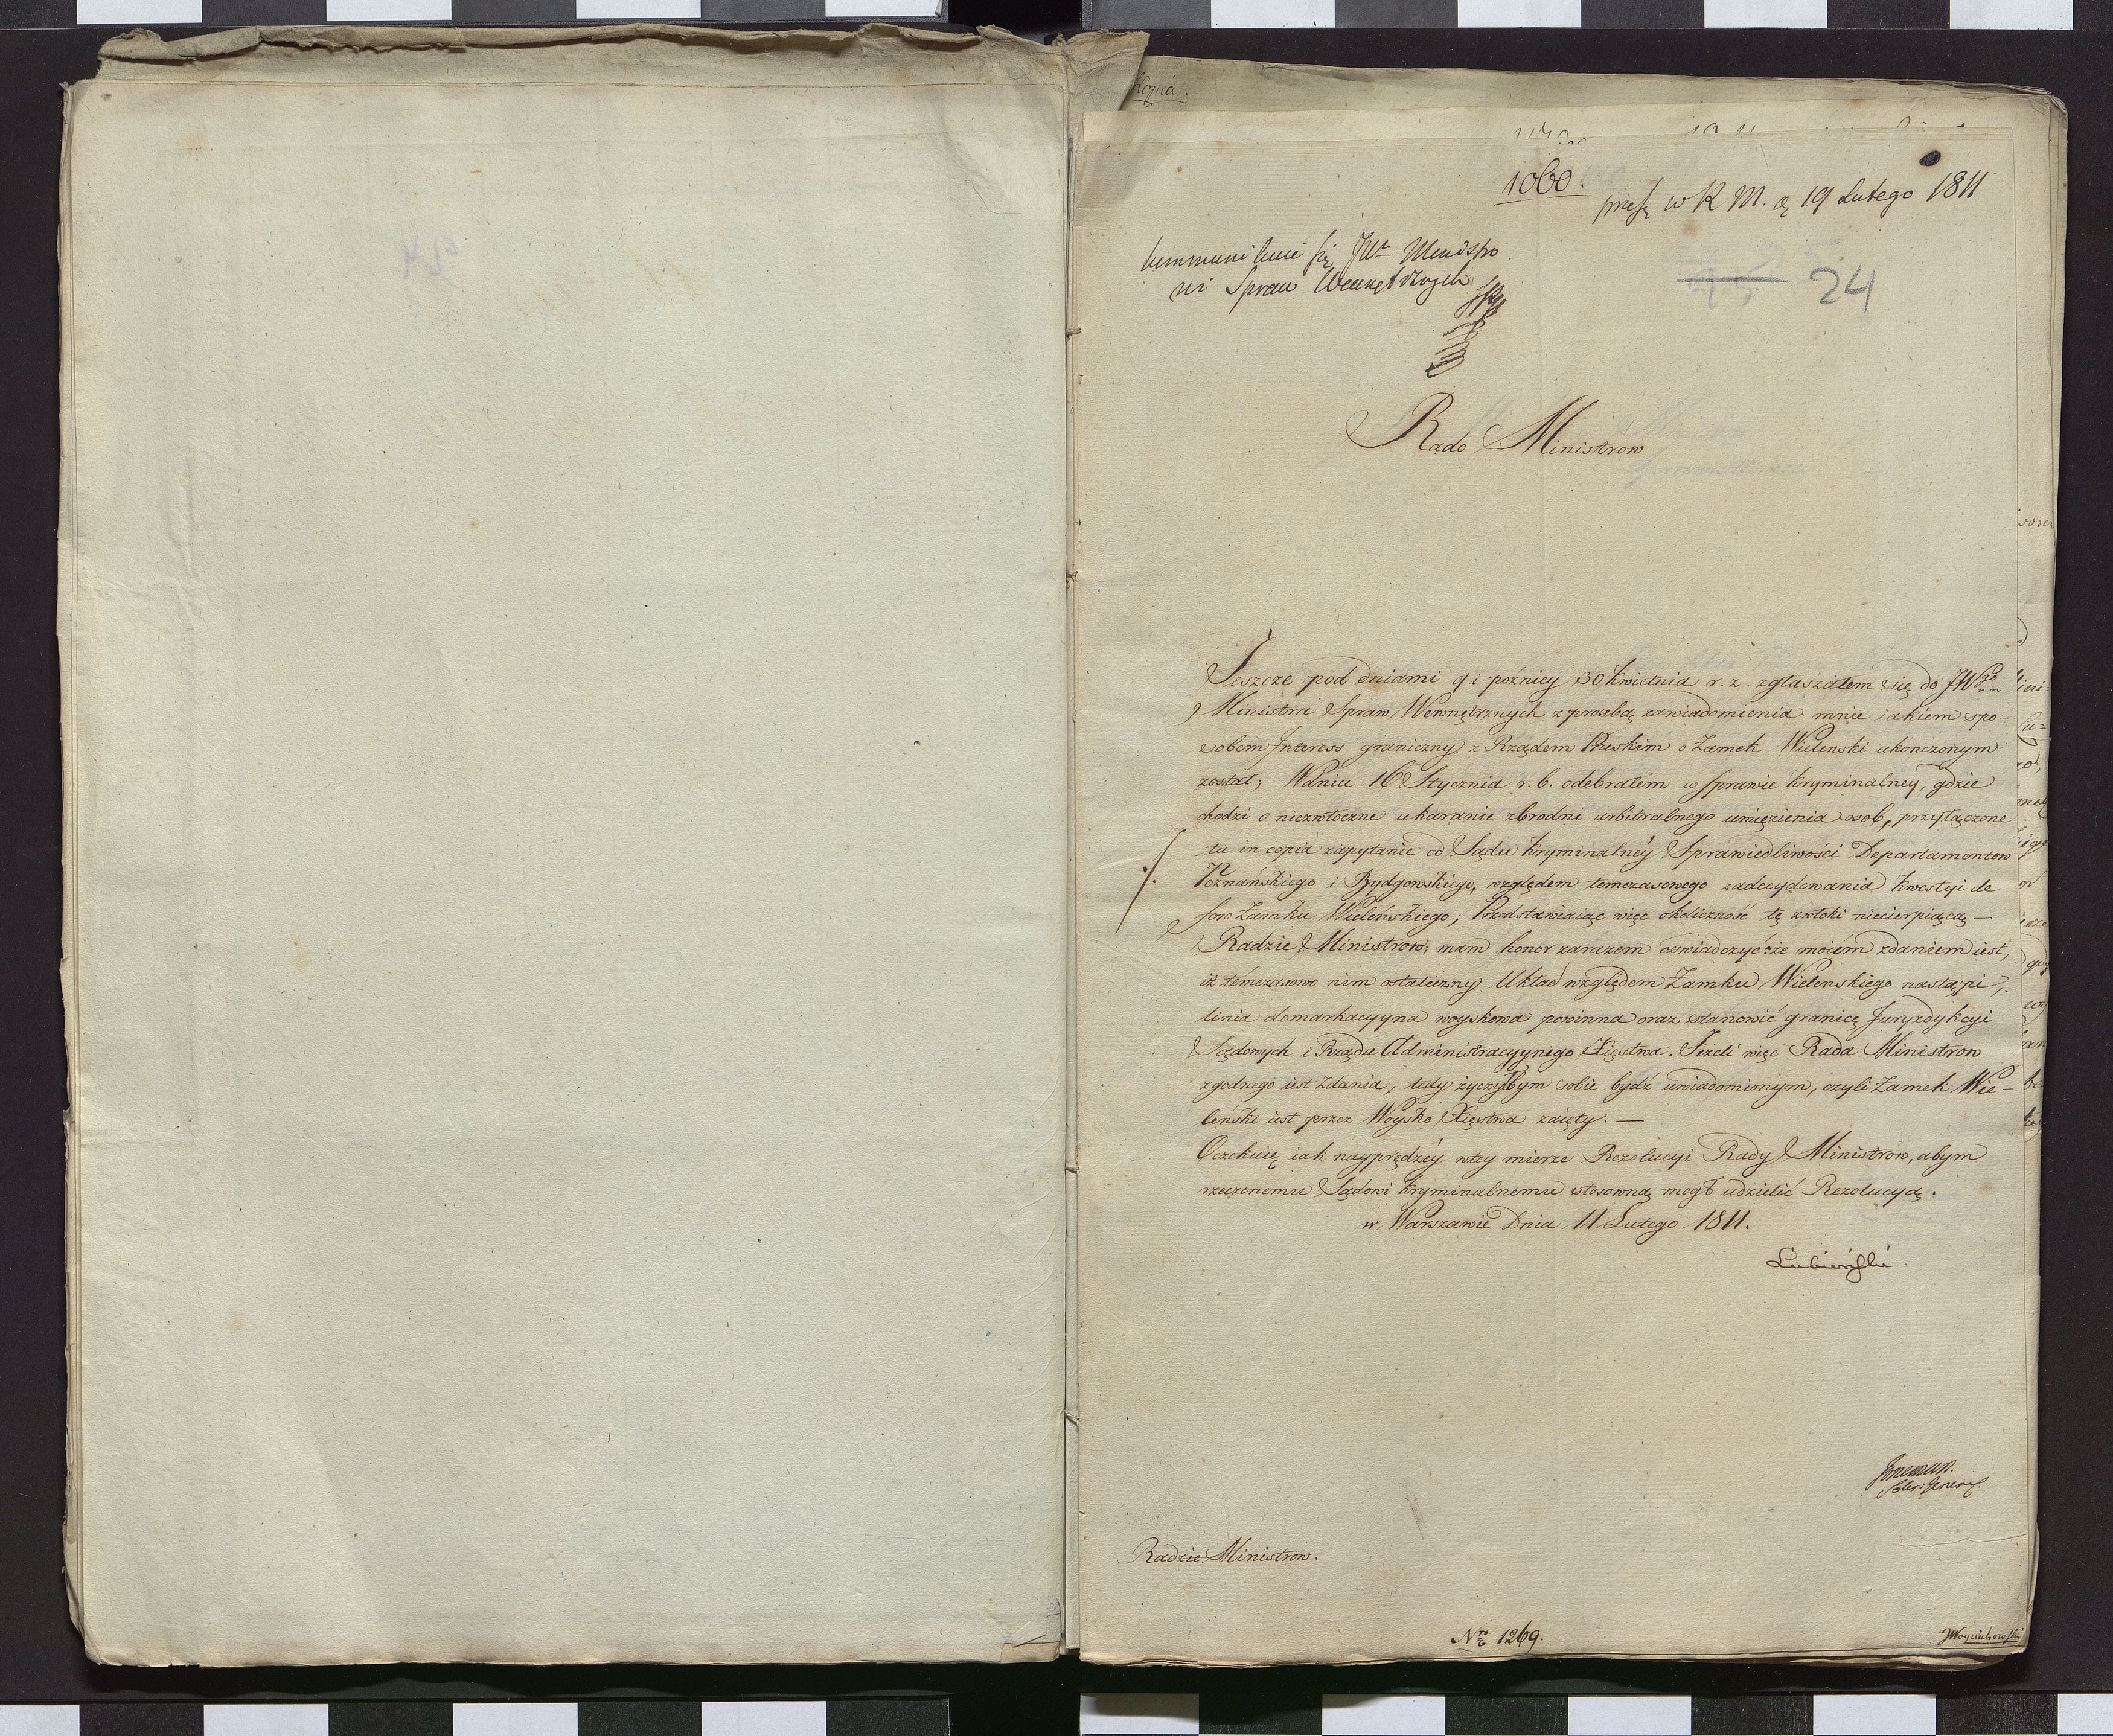 Kopia.
1060.
pres. w R M. d. 19 Lutego 1811
kommunikuie się JW. Ministro
wi Spraw Wewnętrznych
24
Rado Ministrow
Jeszcze pod dniami 9 i pozniey 30 Kwietnia r. z. zgłaszałem się do JWgo
Ministra Spraw Wewnętrznych z prosbą zawiadomienia mnie iakiem spo-
sobem Interess graniczny z Rządem Pruskim o Zamek Wielenski ukonczonym
został; W dniu 16 Stycznia r. b. odebrałem w sprawie kryminalney, gdzie
chodzi o niezwłoczne ukaranie zbrodni arbitralnego uwięzienia osob, przyłączone
tu in copia zapytanie od Sądu Kryminalnéy Sprawiedliwości Departamentow
Poznańskiego i Bydgowskiego, względem temczasowego zadecydowania kwestyi de
foro Zamku Wieleńskiego; Przedstawiaiąc więc okoliczność tę zwłoki niecierpiącą —
Radzie Ministrow, mam honor zarazem oswiadczyć że moiem zdaniem iest,
iż témczasowo nim ostateczny Układ względem Zamku Wielenskiego nastąpi,
linia demarkacyyna woyskowa powinna oraz stanowić granicę Juryzdykcyi
Sądowych i Rządu Administracyynego Xięstwa. Jeżeli więc Rada Ministrow
zgodnego iest zdania, tedy życzyłbym sobie bydź uwiadomionym, czyli Zamek Wie-
leński iest przez Woysko Xięstwa zaięty. —
Oczekuię iak nayprędzéy w tey mierze Rezolucyi Rady Ministrow, abym
rzeczonemu Sądowi Kryminalnemu stosowną mogł udzielić Rezolucyą.
w Warszawie Dnia 11 Lutego 1811.
Łubieński
Sekr: Jener.
Radzie Ministrow.
Nro 1269.
JWoyciechowski